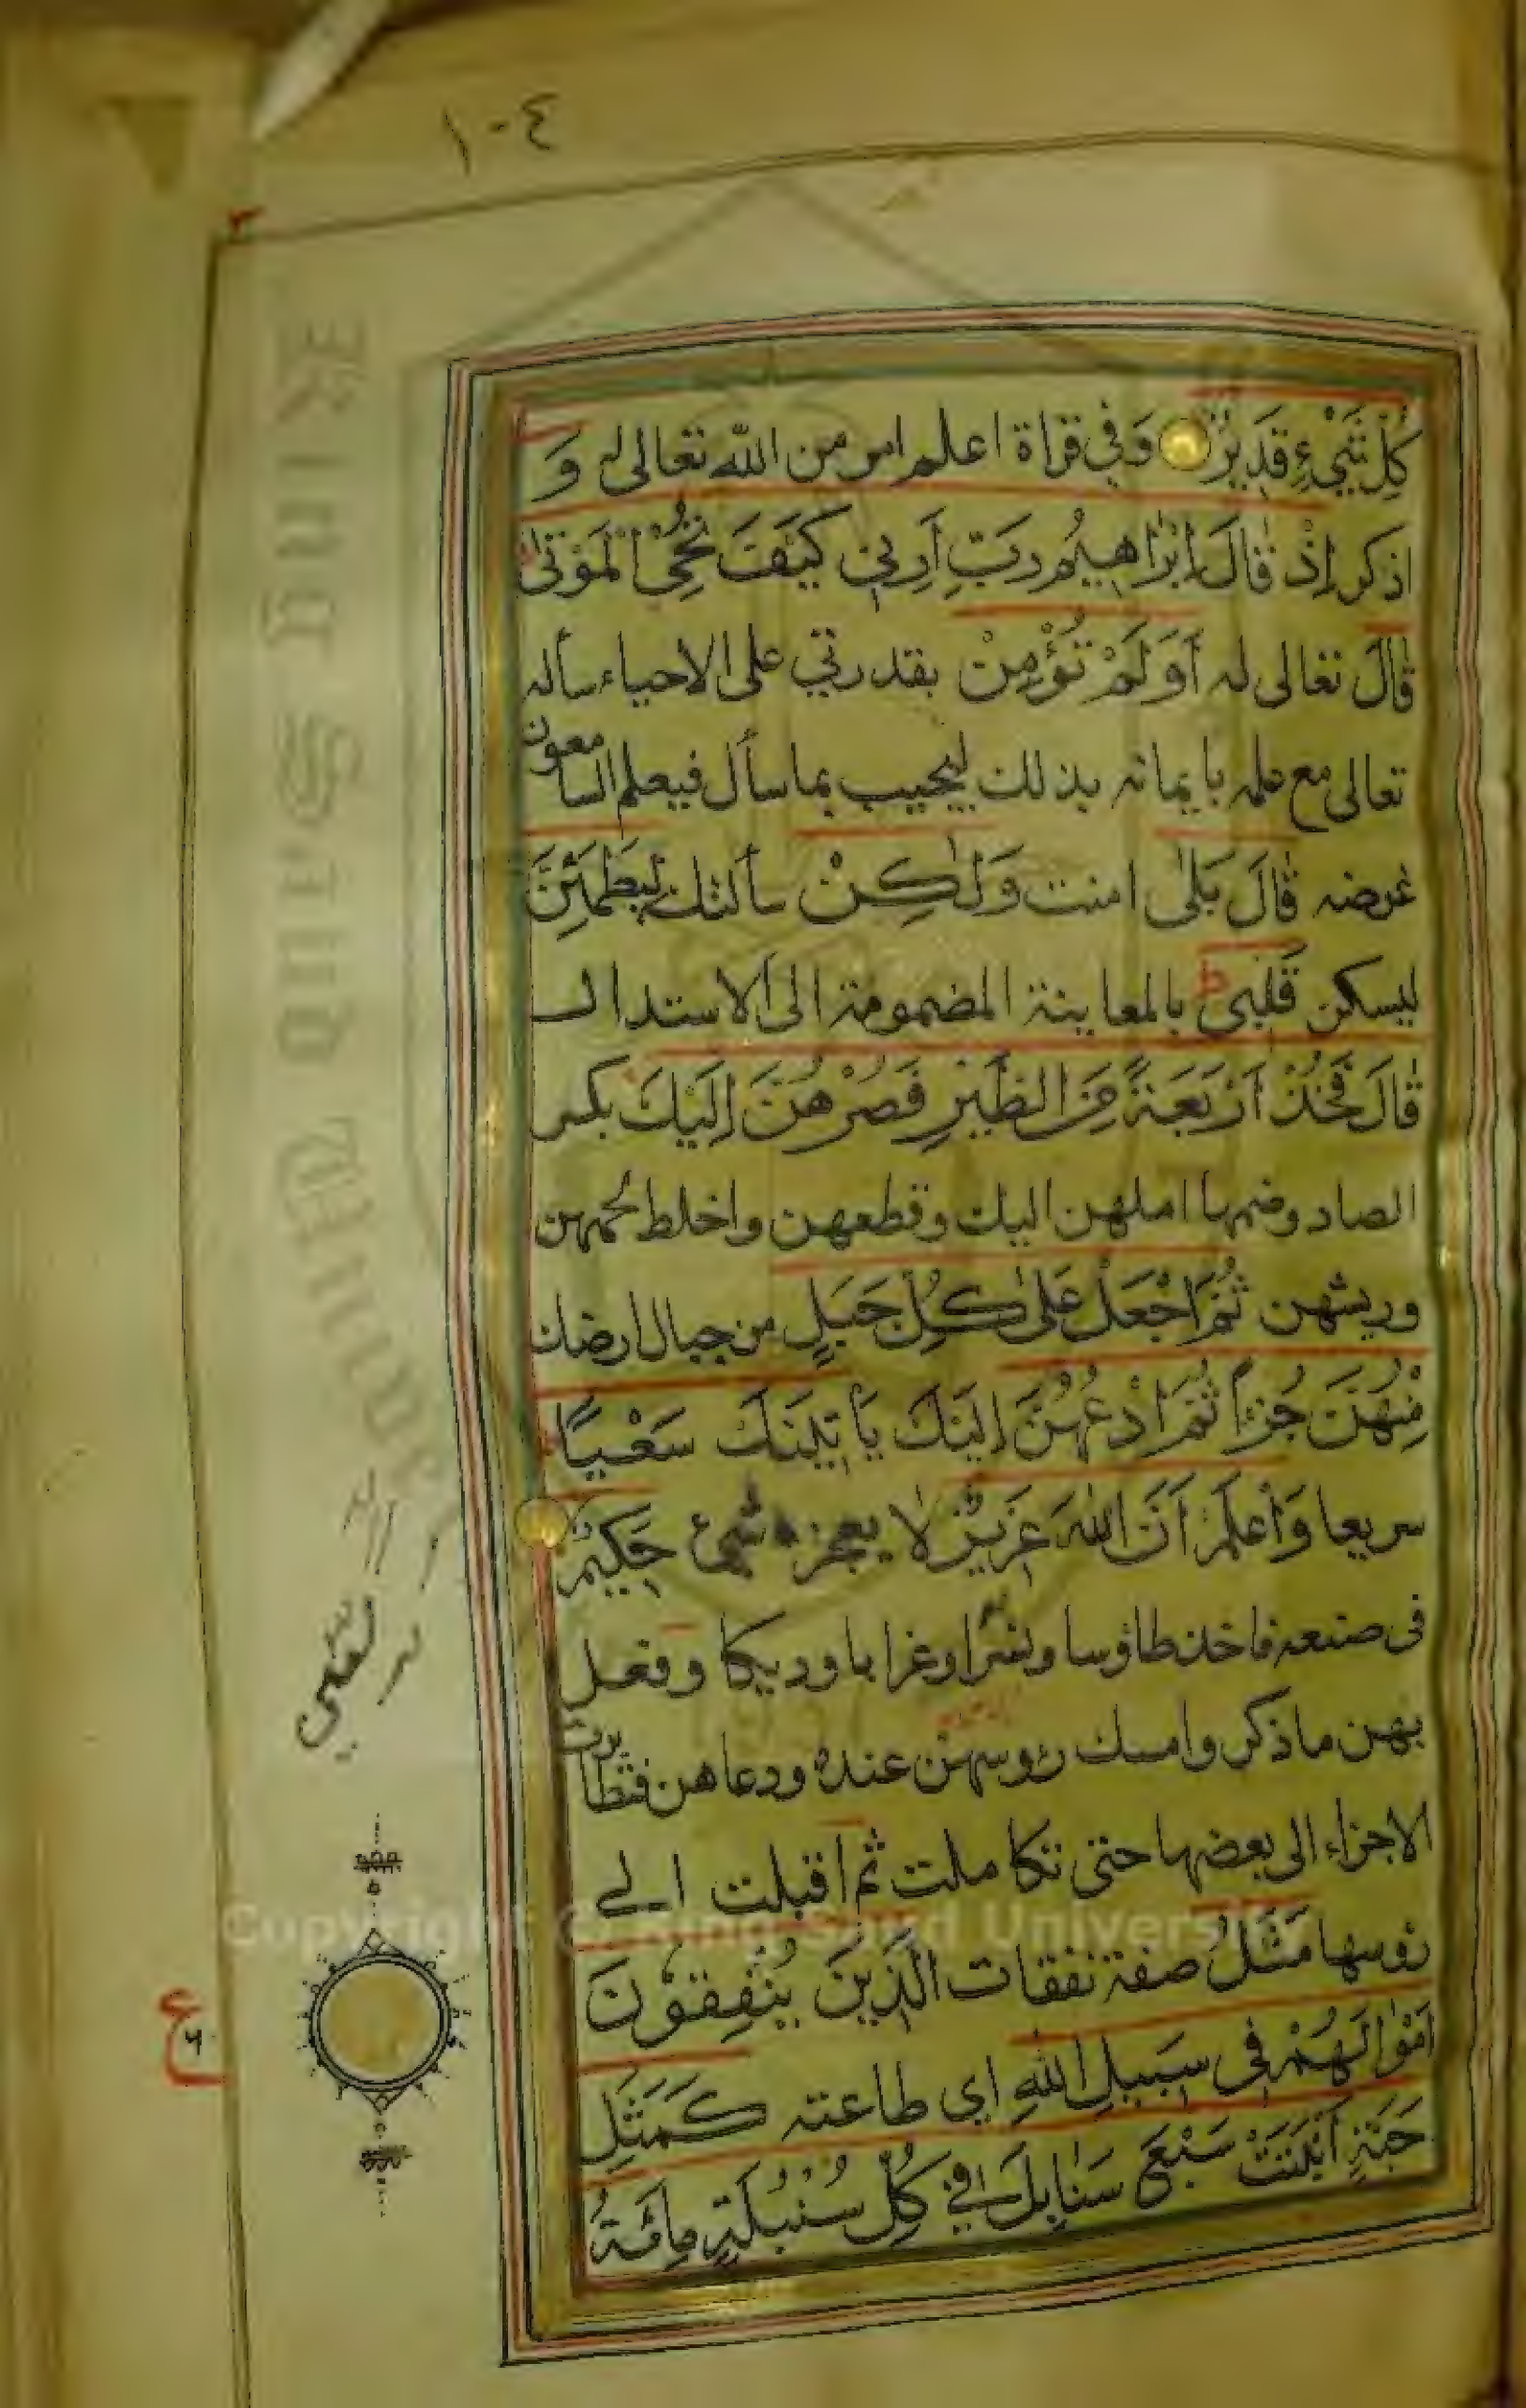 ١٠٤
كُلِّ شَيْءٍ قَدِيرٌ وَفِي قراة اعلم امر من الله تعالى له وَ
اذكر اِذْ قَالَ اِبْرَاهِيمُ رَبِّ اَرِنِي كَيْفَ تُحْيِ الْمَوْتىٰ
قَالَ تعالى له أَوَلَمْ تُؤْمِنْ بقدرتي على الاحياء سأله
تعالى مع علمه بايمانه بذلك ليجيب بما سأل فيعلم السامعون
غرضه قَالَ بَلىٰ امنت وَلٰكِنْ سألتك لِيَطْمَئِنَّ
ليسكن قَلْبِى ط بالمعاينة المضمومة الى الاستدال
قَالَ فَخُذْ اَرْبَعَةً مِنَ الطَّيْرِ فَصُرْهُنَّ اِلَيْكَ بكسر
الصاد وضمها املهن اليك وقطعهن واخلط لحمهن
وريشهن ثُمَّ اجْعَلْ عَلىٰ كُلِّ جَبَلٍ من جبال ارضك
مِنْهُنَّ جُزْاً ثُمَّ ادْعُهُنَّ اِلَيْكَ يَأْتِينَكَ سَعْيًا
سريعا وَاعْلَمْ اَنَّ اللّٰهَ عَزِيزٌ لا يعجزه شئ حَكِيمٌ
فى صنعه فاخذ طاؤسا ونسرا وغرابا وديكا وفعل
بهن ما ذكر وامسك رؤسهن عنده ودعاهن فتطايرت
الاجزاء الى بعضها حتى تكاملت ثم اقبلت الى
رؤسها مَثَلُ صفة نفقات الَّذِينَ يُنْفِقُونَ
اَمْوٰالَهُمْ فِى سَبِيلِ اللّٰهِ اي طاعته كَمَثَلِ
حَبَّةٍ اَنْبَتَتْ سَبْعَ سَنَابِلَ فِي كُلِّ سُنْبُلَةٍ مِائَةُ
ع
King Saud University
Copyright © King Saud University